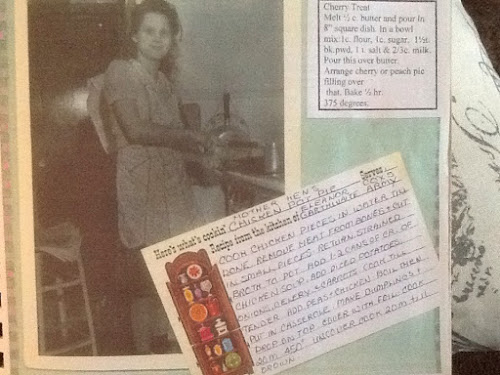 Cherry Treat
Melt ½ c. butter and pour in
8" square dish. In a bowl
mix:1c. flour, 1c. sugar, 1½t.
bk.pwd, 1 t. salt & 2/3c. milk.
Pour this over butter.
Arrange cherry or peach pie
filling over
that. Bake ½ hr.
375 degrees.
MOTHER HEN'S
Here's what's cookin' CHICKEN POT PIE Serves
Recipe from the kitchen of ELEANOR COX
GARTHWAITE ARMY
COOK CHICKEN PIECES IN WATER TILL
DONE. REMOVE MEAT FROM BONES & CUT
IN SMALL PIECES. RETURN STRAINED
BROTH TO POT. ADD 1-2 CANS OF CR. OF
CHICKEN SOUP. ADD DICED POTATOES,
ONIONS, CELERY & CARROTS. COOK TILL
TENDER. ADD PEAS & CHICKEN. BOIL THEN
PUT IN CASSEROLE. MAKE DUMPLINGS &
DROP ON TOP. COVER WITH FOIL. COOK
20 MIN. 450° UNCOVER COOK 20 M till
BROWN